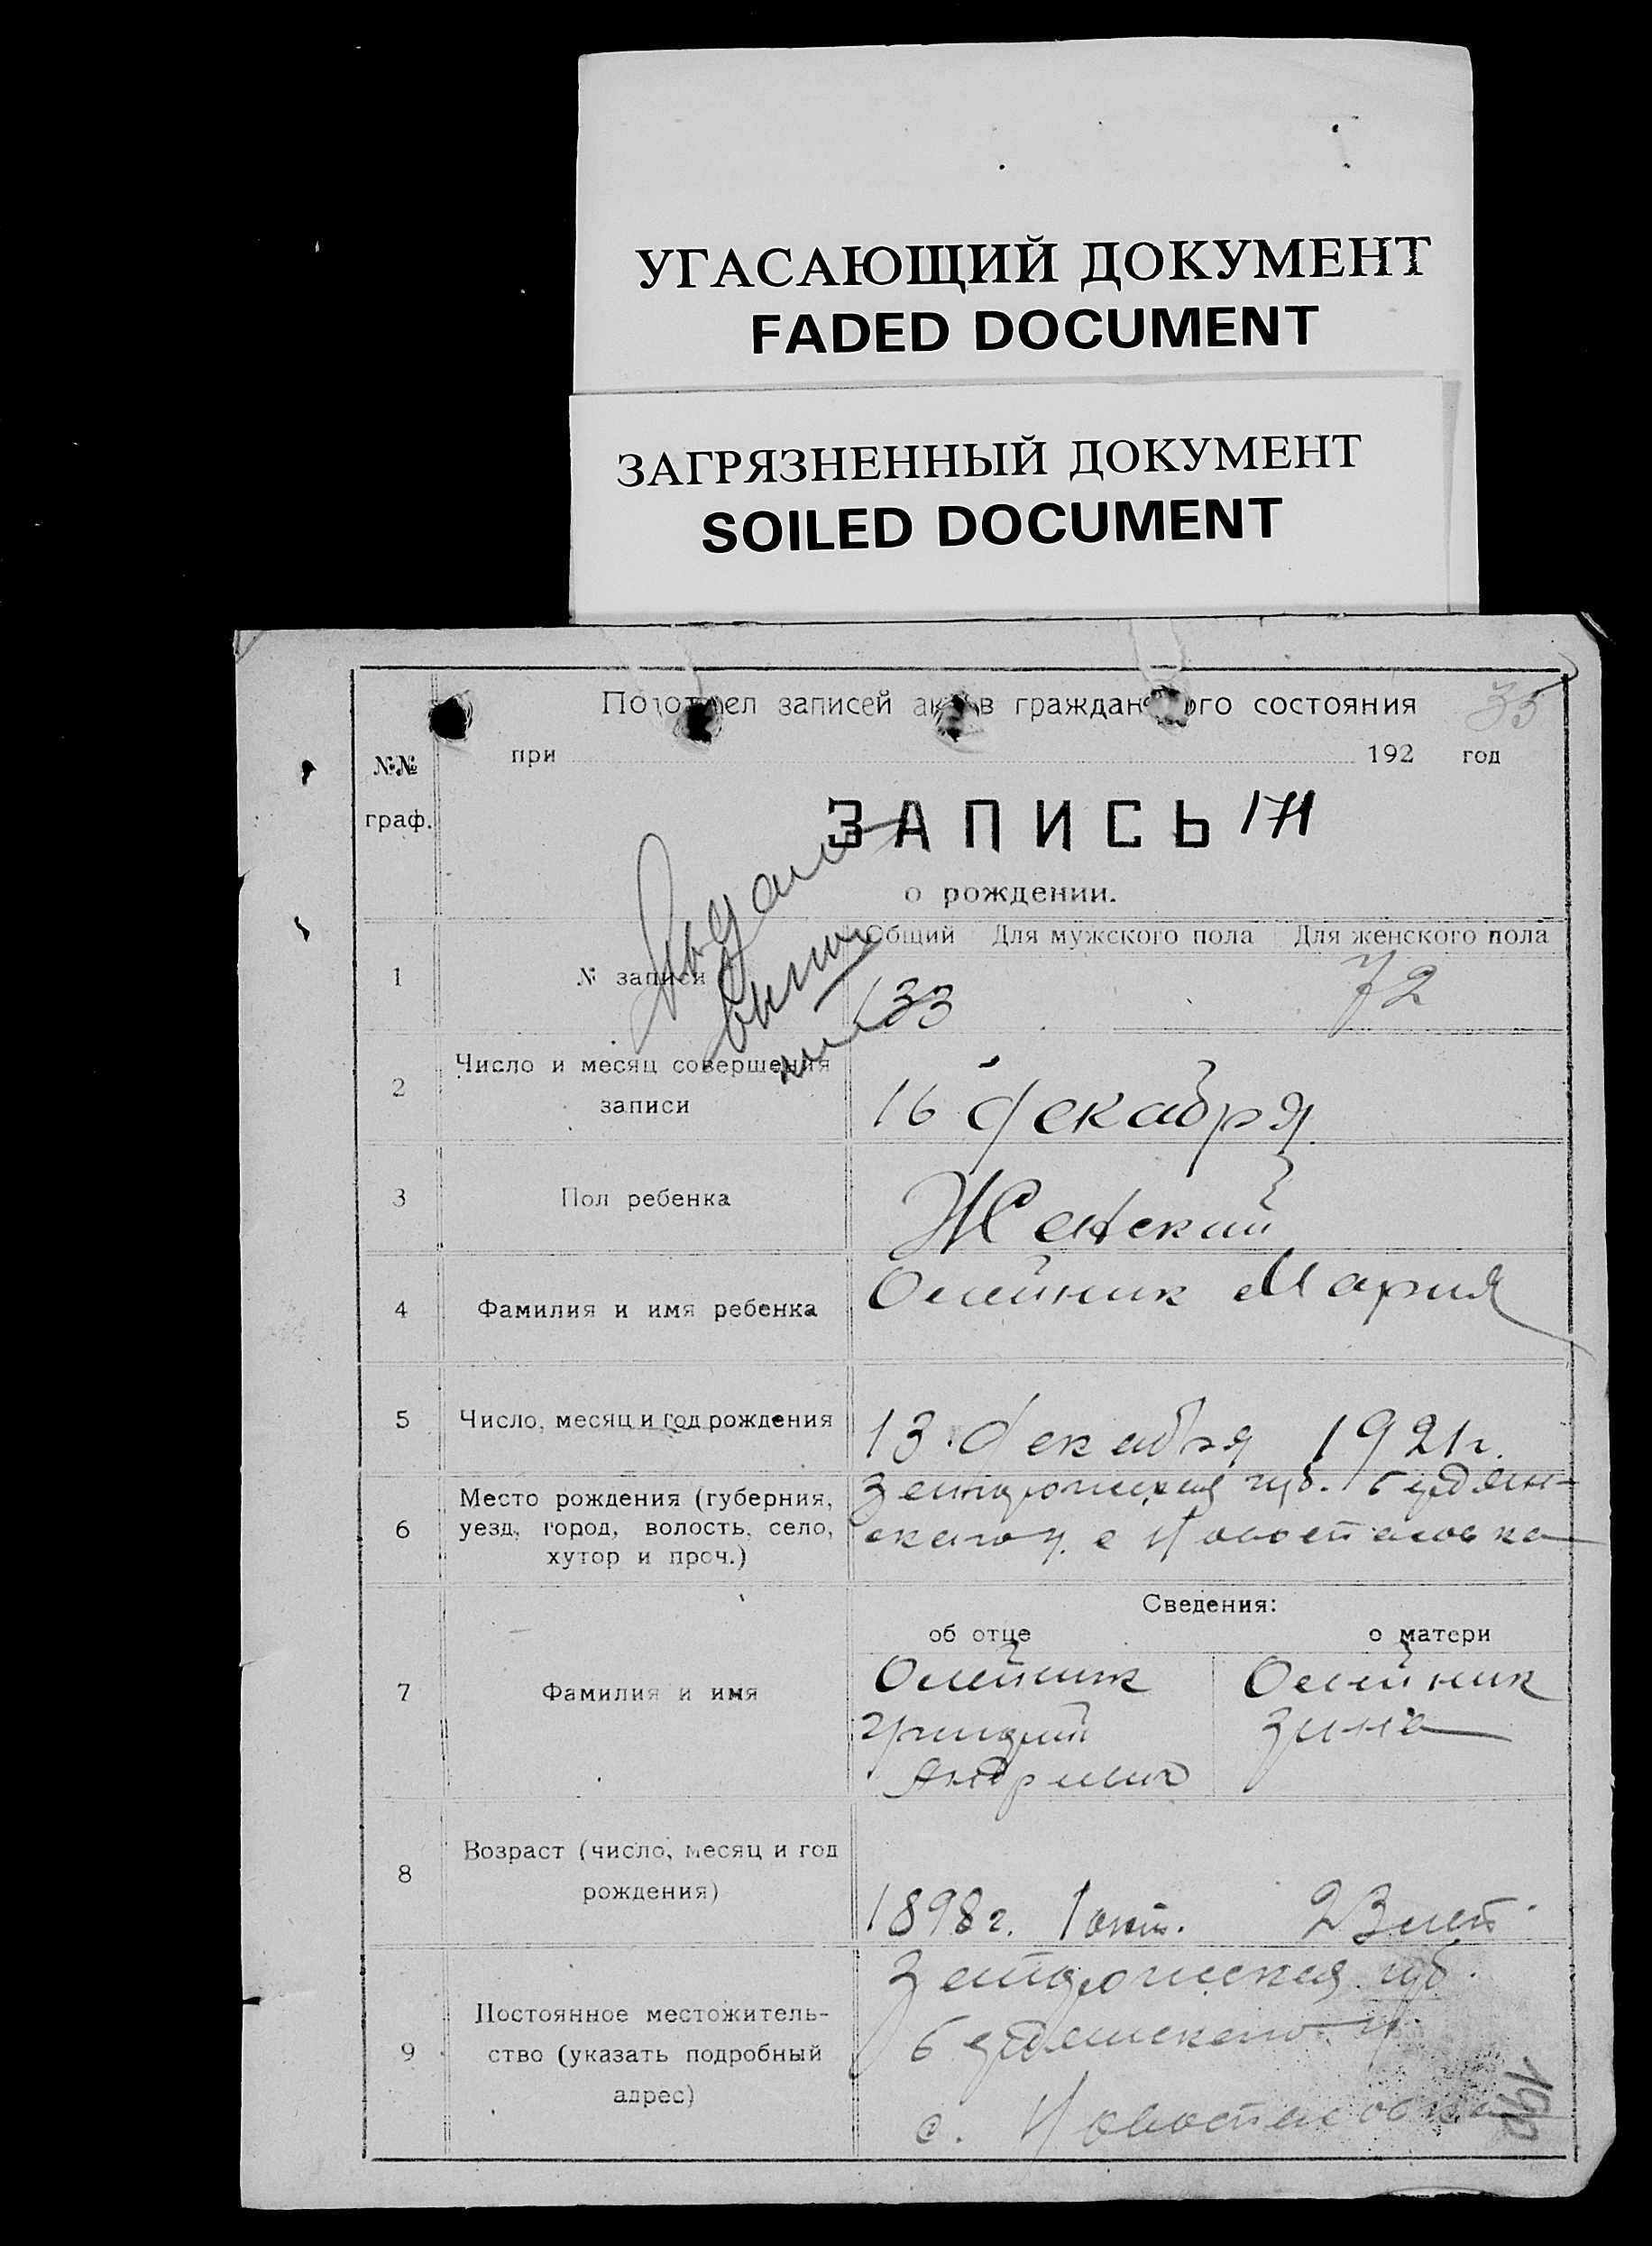 УГАСАЮЩИЙ ДОКУМЕНТ
FADED DOCUMENT
ЗАГРЯЗНЕННЫЙ ДОКУМЕНТ
SOILED DOCUMENT
Подотдел записей актов гражданского состояния 35
при 192 год
№№
граф.
ЗАПИСЬ 171
о рождении.
Общий Для мужского пола Для женского пола
1 № записи 133 72
2 Число и месяц совершения
записи
16 декабря
3 Пол ребенка Женский
4 Фамилия и имя ребенка Олейник Мария
5 Число, месяц и год рождения 13 декабря 1921 г.
6 Место рождения (губерния,
уезд, город, волость, село,
хутор и проч.)
губ.
ского у. с
Сведения:
об отце о матери
7 Фамилия и имя
Олейник Олейник
Зина
8 Возраст (число, месяц и год
рождения)
1898 г. 1 окт. 23 лет
9 Постоянное местожитель-
ство (указать подробный
адрес)
губ.
у.
с.